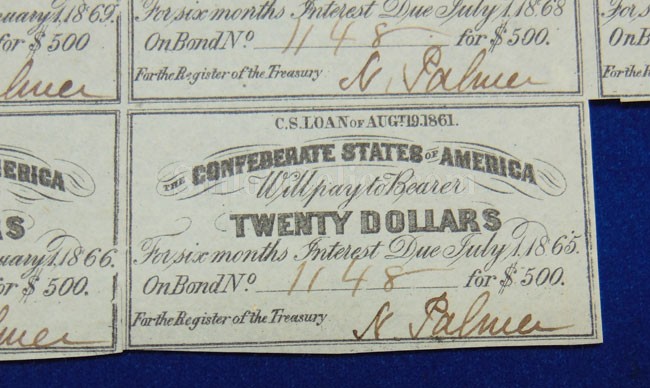 nuary 1, 1869.
for $500
Palmer
For six months Interest Due July 1, 1868
On Bond No. 1148 for $500
For the Register of the Treasury N. Palmer
For s
On B
For the R
C.S. LOAN OF AUGT. 19. 1861.
THE CONFEDERATE STATES OF AMERICA
Will pay to Bearer
TWENTY DOLLARS
For six months Interest Due July 1, 1865.
On Bond No. 1148 for $500.
For the Register of the Treasury N. Palmer
AMERICA
RS
nuary 1, 1866.
for $500.
Palmer